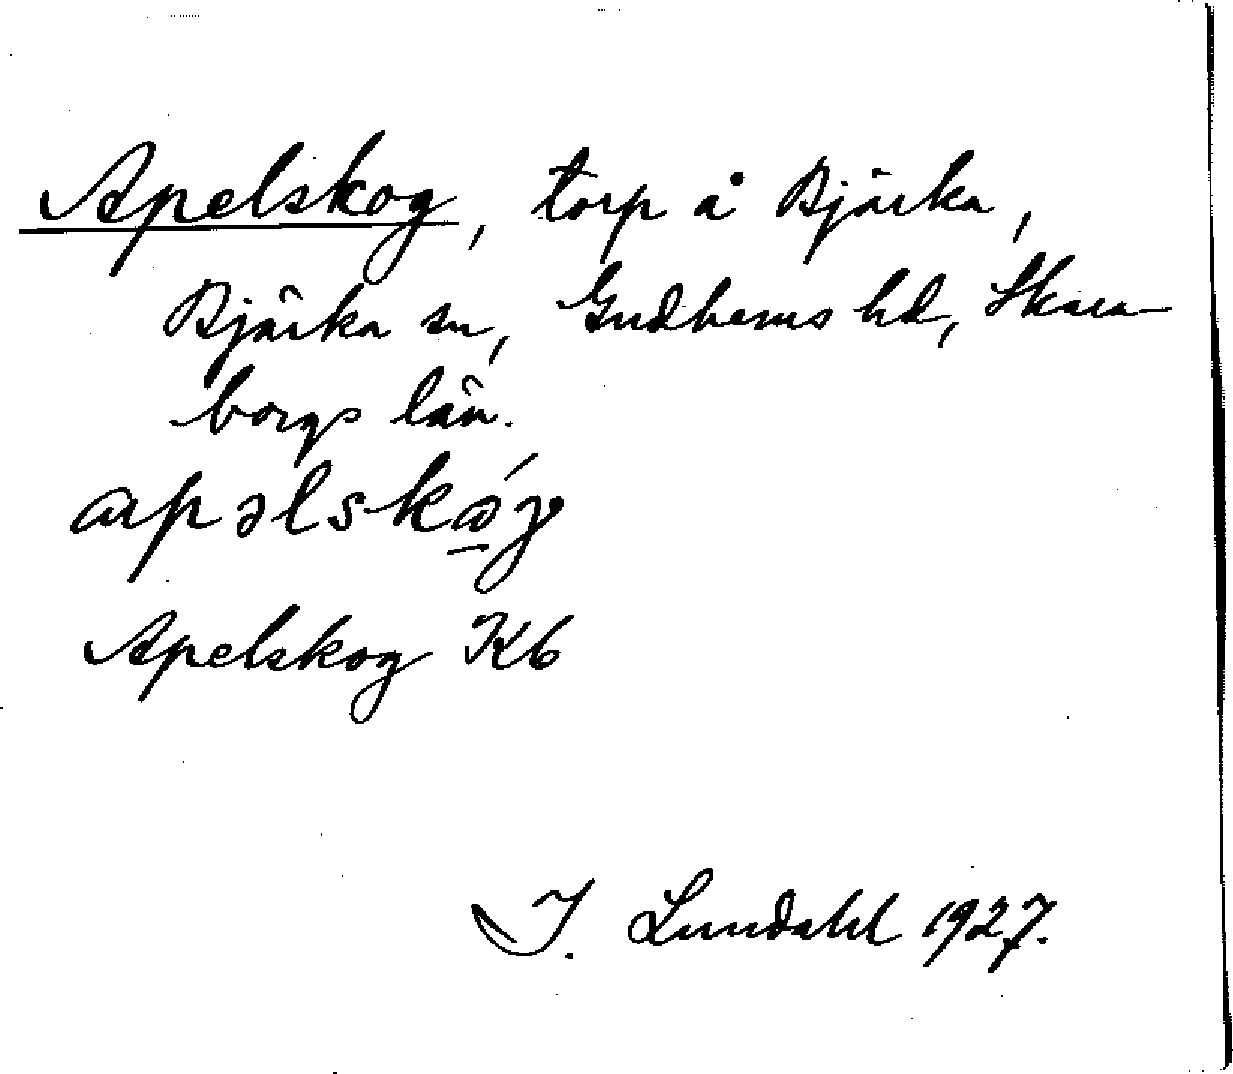 Apelskog, torp å Bjärka,
Bjärka sn, Gudhems hd, Skara-
borgs län.
apəlskǿγ
Apelskog Kb
I. Lundahl 1927.